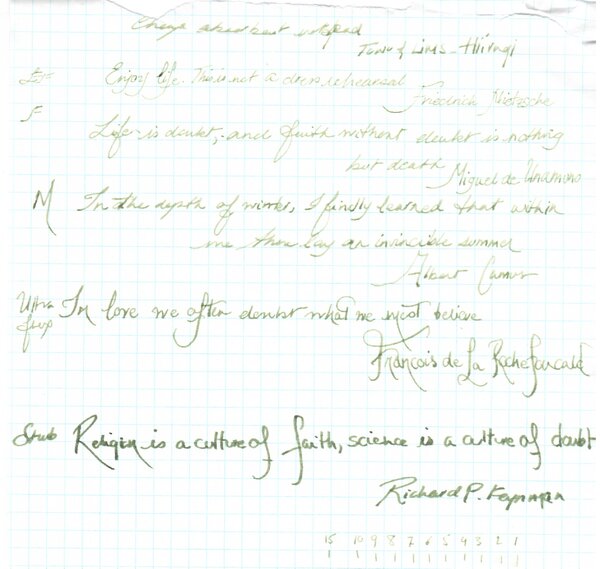 Cheap absorbent notepad
Tono & Lims - Hiiragi
EF Enjoy life. This is not a dress rehearsal
Friedrich Nietzsche
F
Life is doubt, and faith without doubt is nothing
but death Miguel de Unamuno
M In the depth of winter, I finally learned that within
me there lay an invincible summer
Albert Camus
Ultra In love we often doubt what we most believe
flex
François de La Rochefoucald
Stub Religion is a culture of faith, science is a culture of doubt
Richard P. Feynman
15 10 9 8 7 6 5 4 3 2 1